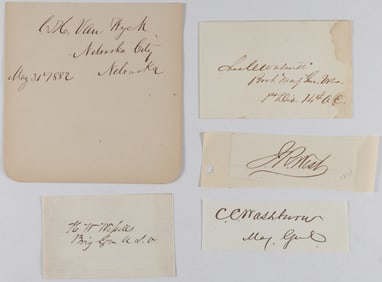 C. H. Van Wyck
Nebraska City
Nebraska
May 31st 1882
Brvt Maj Gen Vols.
1st Div. 14th A.C.
J R West
H. W. Wessells
Brig Gen U.S.V
C. C. Washburn
Maj. Genl